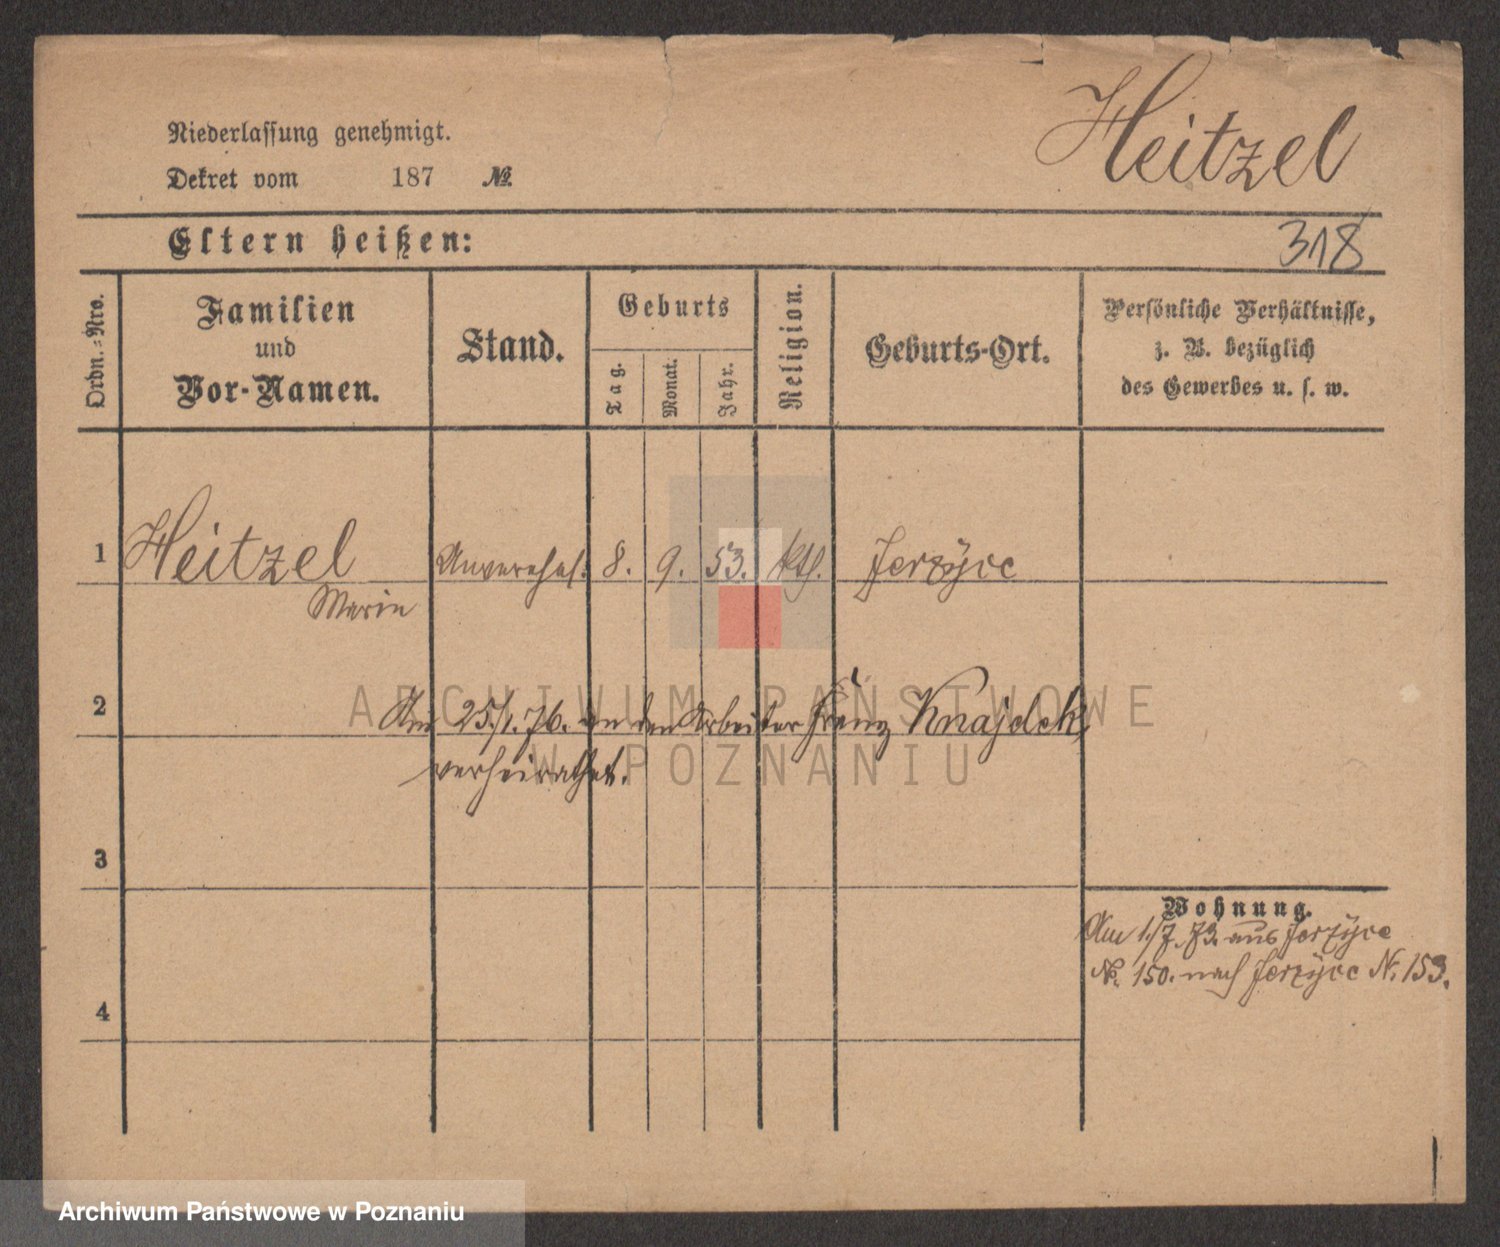 Heitzel
Niederlassung genehmigt.
Dekret vom 187 №.
Eltern heißen:
318
Ordn.-Nro.
Familien
und
Vor-Namen.
Stand.
Geburts
Tag.
Monat.
Jahr.
Religion.
Geburts-Ort.
Persönliche Verhältnisse,
z. B. bezüglich
des Gewerbes u. s. w.
1 Heitzel Unverehel. 8. 9. 53. kth. Jerzÿce
Marie
2 Am 25./1. 76. an den Arbeiter Franz Knajdek
verheirathet.
3
Wohnung.
Am 1./7. 73. aus Jerzÿce
No. 150. nach Jerzÿce Nr. 153.
4
ARCHIWUM PAŃSTWOWE
W POZNANIU
Archiwum Państwowe w Poznaniu